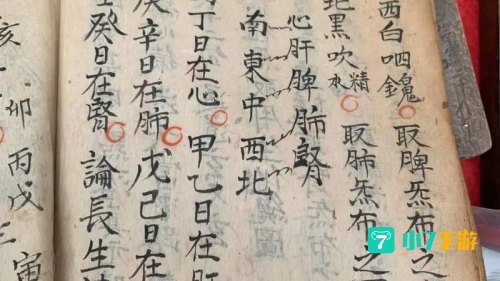 西白呬魂金取脾炁布之
北黑吹精水取肺炁布之
心肝脾肺腎
南東中西北
丁日在心甲乙日在肝
庚辛日在肺戊己日在
癸日在腎論長生
亥
卯丙戊
寅
7小7手游